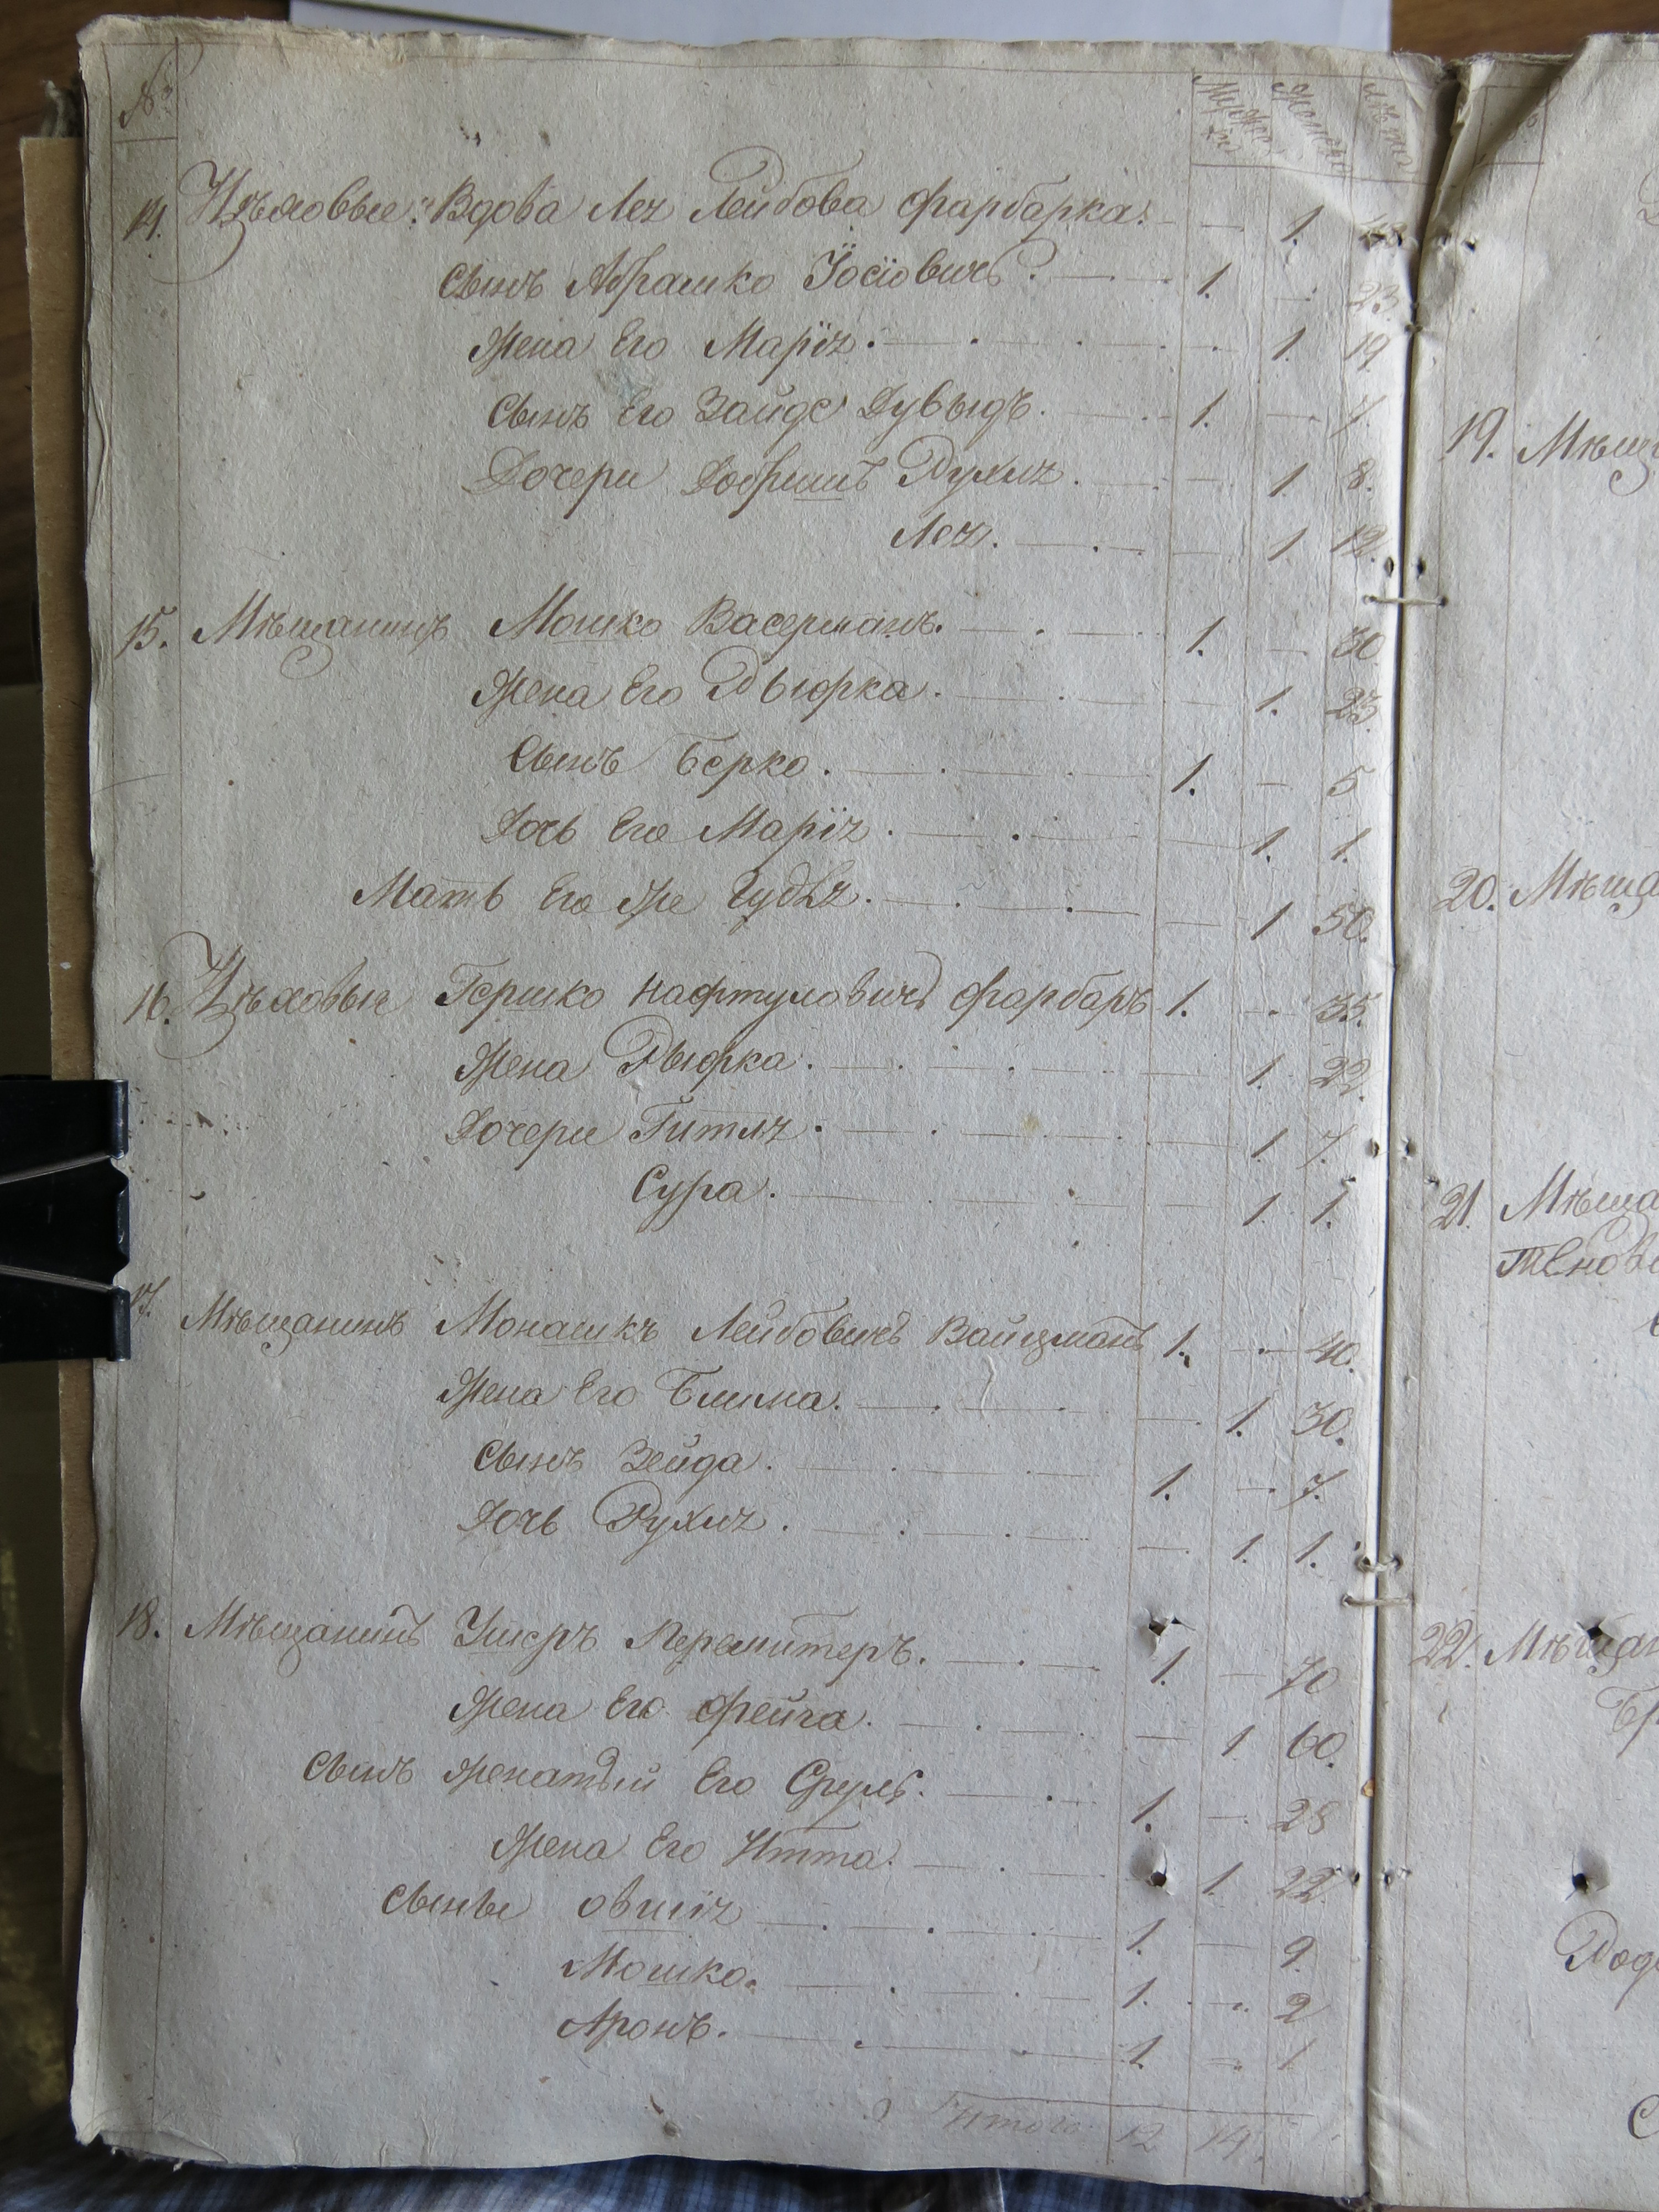 №
Мужес: Женска Лѣта
кихъ
14. Цѣховые: Вдова Лея Лейбова фарбарка. — 1. 48
сынъ Абрашко Іосіовичъ. 1. — 23.
Жена Его Марія. 1. 19
Сынъ Его Зайде Дувыдъ. 1. — 7.
Дочери Добришъ Рухля. — 1. 8.
Лея. — 1 12.
15. Мѣщанинъ Мошко Васерманъ. 1. — 30
Жена Его Рыфка. — 1. 23
Сынъ Берко. 1. — 5
Дочь Его Марія. — 1. 1.
Мать Его же Гудля. — 1 50.
16. Цѣховый Гершко Нафтуловичъ фарбаръ 1. — 35.
Жена Рыфка. — 1. 22.
Дочери Гитля. — 1. 7.
Сура. — 1. 1.
17. Мѣщанинъ Монашкъ Лейбовичъ Вайцманъ 1. — 40.
Жена Его Блима. — 1. 30.
Сынъ Зейда. 1. — 7.
Дочь Рухля. — 1. 1.
18. Мѣщанинъ Ушеръ Перемитеръ. 1. — 70
Жена Его Фейга. — 1. 60.
Сынъ женатый Его Сруль. 1. — 28
Жена Его Итта. 1. 22
Сыны Овшія 1. — 9
Мошко. 1. — 2
Аронъ. 1. — 1
Итого 12 14.
19. Мѣщ
20. Мѣща
21. Мѣща
22. Мѣщан